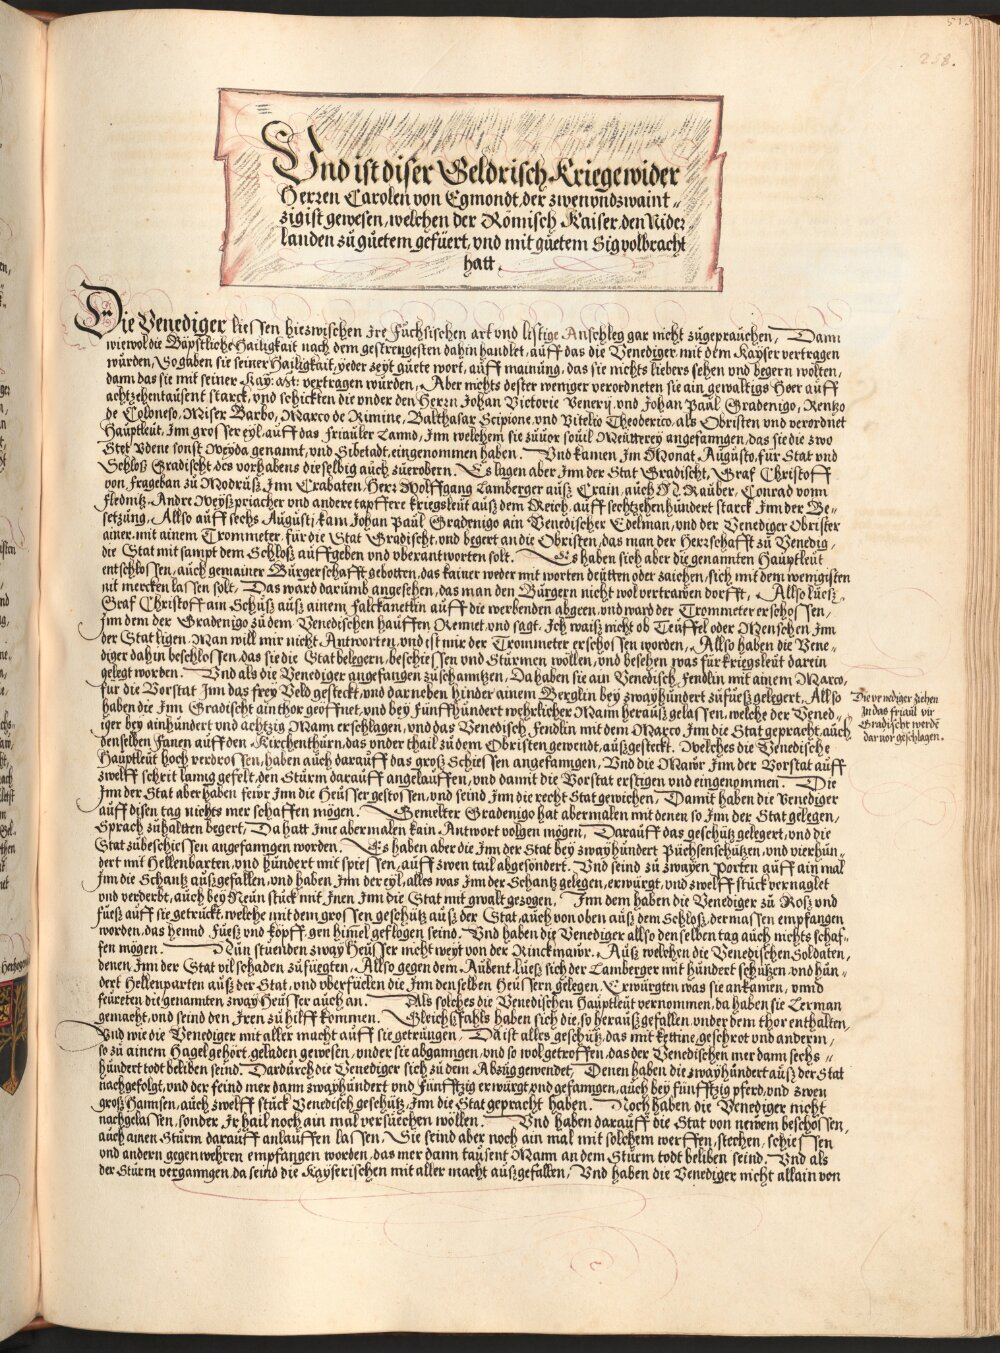 513
258.
Vnd ist diser Geldrisch Kriege wider
Herren Carolen von Egmondt, der zwen vndzwaint„
zigist gewesen, welchen der Römisch Kaiser, den Nider„
landen zů gůetem gefüert, vnd mit gůetem Sig volbracht
hatt.
Die Venediger liessen hiezwischen Jre Füchsischen art vnd listige Anschleg gar nicht zůgeprauchen, Dann
wiewol die Bäpstliche Hailigkait nach dem gestrengesten dahin handlet, auff das die Venediger mit dem Kayser vertragen
würden, So gaben sie seiner Hailigkait, yeder zeyt gůete wort, auff mainung, das sie nichts liebers sehen vnd begern wolten,
dann das sie mit seiner Kay: Mt: vertragen würden, Aber nichts dester weniger verordneten sie ain gewaltigs Hoer auff
achtzehentausent starck, vnd schickten die vnder den Herrn Johan Victorie Venerij vnd Johan Paul Gradenigo, Rentzo
de Coloneso, Miser Barbo, Marco de Rimine, Balthasar Scipione, vnd Vitelio Theoderico, als Obristen vnd verordnet
Haůptleůt, Jnn grosser eyl, auff das Friauler Lannd, Jnn welchem sie zůuor souil Meütterey angefanngen, das sie die zwo
Stet Vdene sonst Weyda genannt, vnd Sibetadt, eingenommen haben. Vnd kamen Jm Monat Augusto, für Stat vnd
Schloß Gradischt, des vorhabens dieselbig auch zůerobern. Es lagen aber Jnn der Stat Gradischt, Graf Christoff
von Frageban zů Modrusß Jnn Crabaten, Herr Wolffgang Lamberger auß Crain, auch N. Rauber, Conrad vonn
Flednitz, Andre Weyßpriacher vnd andere tapffere kriegsleüt auß dem Reich, auff sechtzehenhundert starck Jnn der Be„
setzung, Allso auff sechs Augusti, kam Johan Paul Gradenigo ain Venedischer Edelman, vnd der Venediger Obrister
ainer, mit ainem Trommeter, für die Stat Gradischt, vnd begert an die Obristen, das man der Herrschafft zů Venedig,
die Stat mit sampt dem Schloß auffgeben vnd vberantworten solt. Es haben sich aber die genannten Haůptleüt
entschlossen, auch gemainer Bürgerschafft gebotten, das kainer weder mit worten deütten oder zaichen, sich mit dem wenigisten
nit mercken lassen solt, Das ward darumb angesehen, das man den Bürgern nicht wol vertrawen dorfft, Allso lůesz
Graf Christoff ain Schuß auß ainem Falckanetlin auff die werbenden abgeen, vnd ward der Trommeter erschossen,
Jnn dem der Gradenigo zů dem Venedischen hauffen Rennet, vnd sagt, Jch waiß nicht ob Teüffel oder Menschen Jnn
der Stat ligen, Man will mir nicht Antworten, vnd ist mir der Trommeter erschossen worden, Allso haben die Vene„
diger dahin beschlossen, das sie die Stat belegern, beschiessen vnd Stürmen wöllen, vnd besehen was für kriegsleüt darein
gelegt worden. Vnd als die Venediger angefangen zůschanntzen, Da haben sie ain Venedisch Fendlin mit ainem Marco,
für die Vorstat Jnn das frey Veld gesteckt, vnd darneben hinder ainem Berglin bey zwayhündert zůfüesz gelegert, Allso
haben die Jnn Gradischt ain thor geöffnet, vnd bey fünffhündert wehrlicher Mann herauß gelassen, welche der Vened„
iger bey ainhündert vnd achtzig Mann erschlagen, vnd das Venedisch Fendlin mit dem Marco Jnn die Stat gepracht, auch
denselben Fanen auff den Kirchenthürn, das vnder thail zů dem Obristen gewendt, außgesteckt. Welches die Venedische
Haůptleüt hoch verdrossen, haben auch darauff das groß Schiessen angefanngen, Vnd die Maůr Jnn der Vorstat auff
zwelff schrit lanng gefelt, den Stürm darauff angelauffen, vnd damit die Vorstat erstigen vnd eingenommen. Die
Jnn der Stat aber haben fewr Jnn die Heüsser gestossen, vnd seind Jnn die recht Stat gewichen, Damit haben die Venediger
auff disen tag nichts mer schaffen mögen. Gemelter Gradenigo hat abermalen mit denen so Jnn der Stat gelegen,
Sprach zůhaltten begert, Da hatt Jme abermalen kain Antwort volgen mögen, Darauff das geschütz gelegert, vnd die
Stat zůbeschiessen angefanngen worden. Es haben aber die Jnn der Stat bey zwayhündert Püchsenschützen, vnd vierhün„
dert mit Hellenbarten, vnd hündert mit spiessen, auff zwen tail abgesondert. Vnd seind zů zwayen Porten auff ain mal
Jnn die Schantz außgefallen, vnd haben Jnn der eyl, alles was Jnn der Schantz gelegen, erwürgt, vnd zwelff stück vernaglet
vnd verderbt, auch bey Neün stück mit Jnen Jnn die Stat mit gwalt gezogen, Jnn dem haben die Venediger zů Roß vnd
füesz auff sie getrückt, welche mit dem grossen geschütz auß der Stat, auch von oben auß dem Schloß, dermassen empfangen
worden, das hennd füesz vnd köpff gen himel geflogen seind. Vnd haben die Venediger allso denselben tag auch nichts schaf„
fen mögen. Nun stuenden zway Heüsser nicht weyt von der Rinckmaůr. Auß welchen die Venedischen Soldaten,
denen Jnn der Stat vil schaden zůfüegten, Allso gegen dem Aubent, lůesz sich der Lamberger mit hündert schützen vnd hün„
dert Hellenparten auß der Stat, vnd vberfielen die Jnn denselben Heüssern gelegen, Erwürgten was sie ankamen, vnnd
feüreten die genannten zway Heüsser auch an. Als solches die Venedischen Haůptleüt vernommen, da haben sie Lerman
gemacht, vnd seind den Jren zů hilff kommen. Gleichßfahls haben sich die, so heraußgefallen vnder dem thor enthalten,
Vnd wie die Venediger mit aller macht auff sie getrungen, Da ist alles geschütz, das mit kettine, geschrot vnd anderm,
so zů ainem Hagel gehört, geladen gewesen, vnder sie abganngen, vnd so wol getroffen, das der Venedischen mer dann sechs„
hündert todt beliben seind. Dardurch die Venediger sich zů dem Abzůg gewendet, Denen haben die zwayhündert auß der Stat
nachgefolgt, vnd der feind mer dann zwayhündert vnd Fünfftzig erwürgt vnd gefanngen, auch bey fünfftzig pferd, vnd zwen
groß Hannsen, auch zwelff stück Venedisch geschütz, Jnn die Stat gepracht haben. Noch haben die Venediger nicht
nachgelassen, sonder Jr hail noch ain mal versüechen wöllen. Vnd haben darauff die Stat von newem beschossen,
auch ainen Stürm darauff anlauffen lassen, Sie seind aber noch ain mal mit solchem werffen, stechen, schiessen
vnd andern gegenwehren empfangen worden, das mer dann taüsent Mann an dem Stürm todt beliben seind. Vnd als
der Stürm verganngen, da seind die Kayserischen mit aller macht außgefallen, Vnd haben die Venediger nicht allain von
Die venediger ziehen
in das friaul vir
Gradischt werdē
daruor geschlagen.